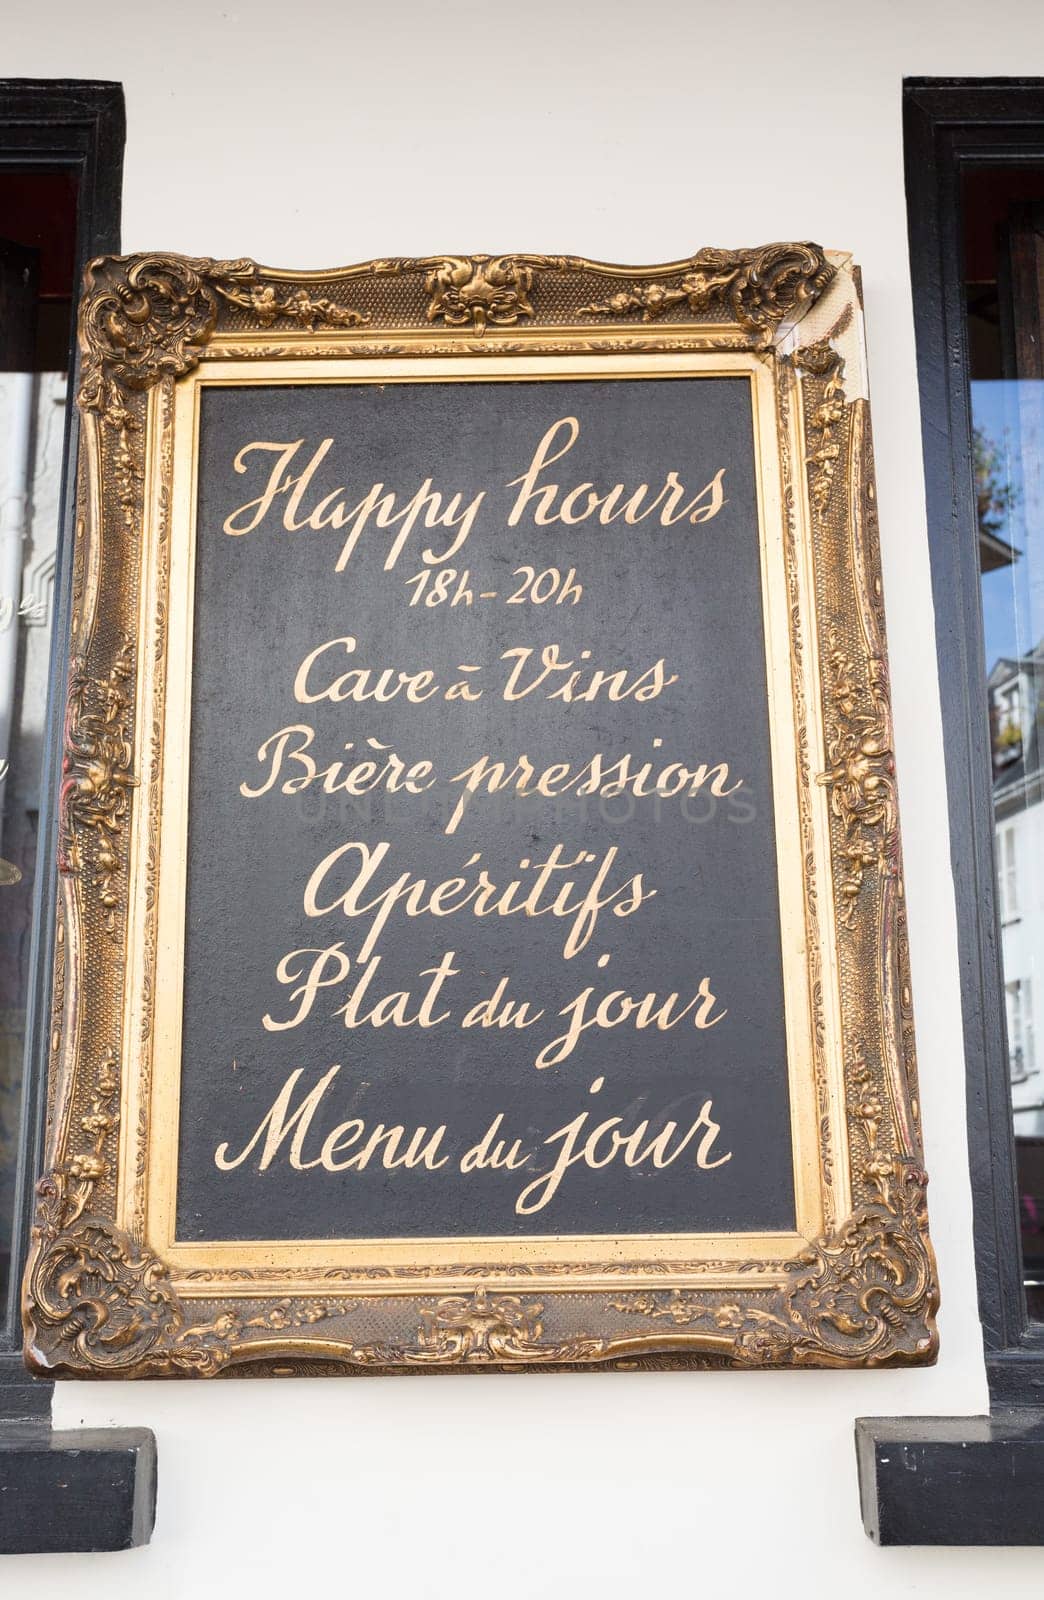 Happy hours
18h - 20h
Cave à Vins
Bière pression
Apéritifs
Plat du jour
Menu du jour
UNLIMPHOTOS